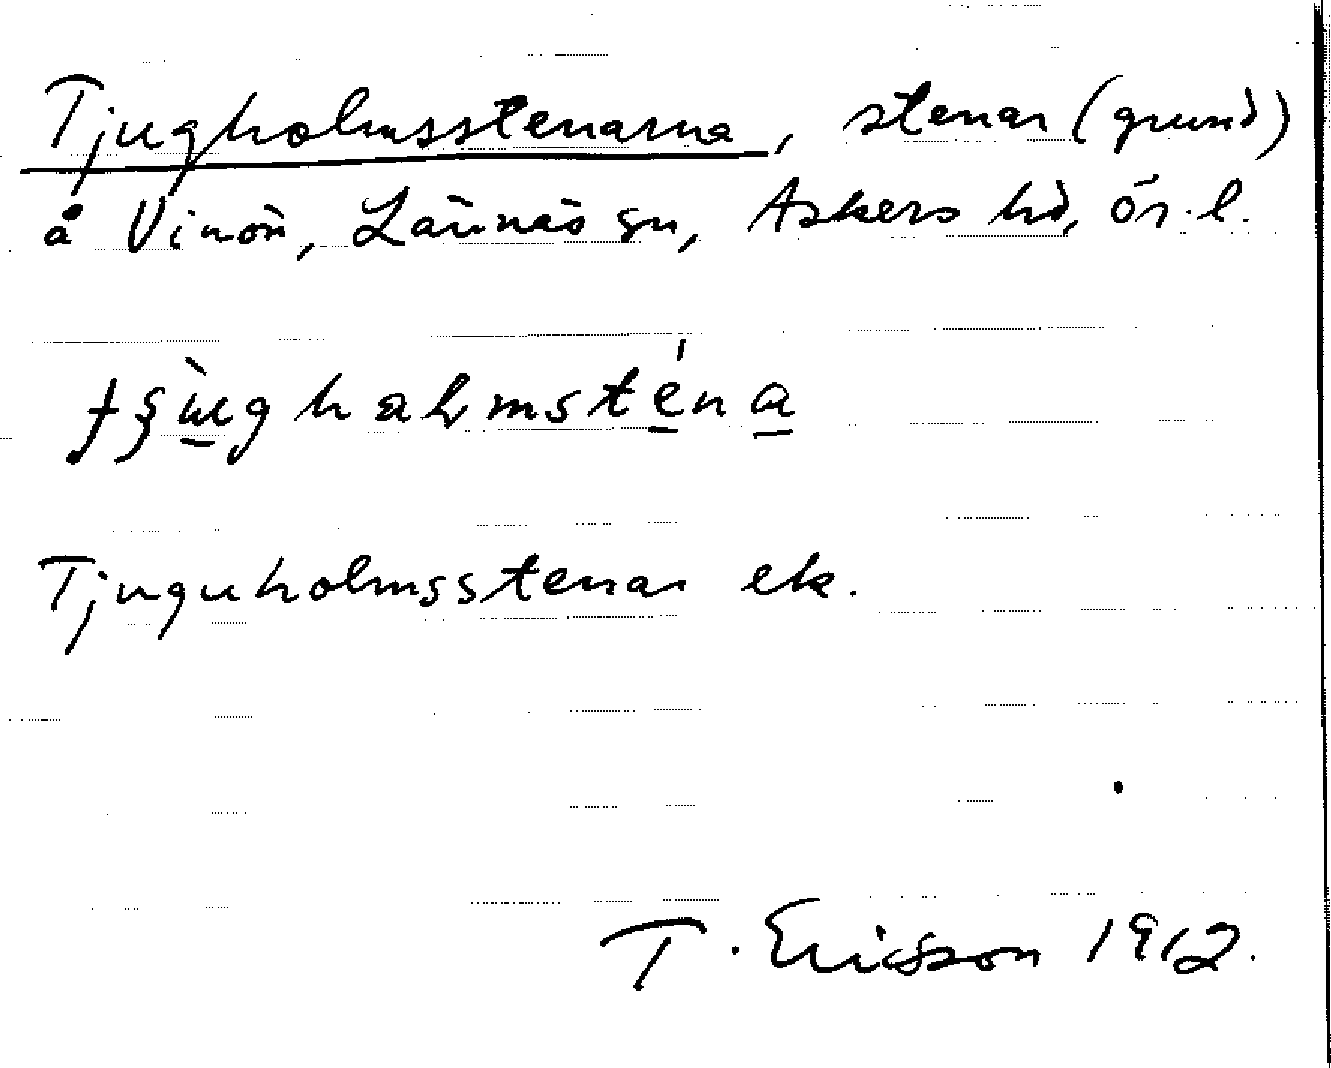 Tjugholmsstenarna, stenar (grund)
å Vinön, Lännäs sn, Askers hd, ör. l.
Tjuguholmsstenar ek.
T. Ericsson 1912.